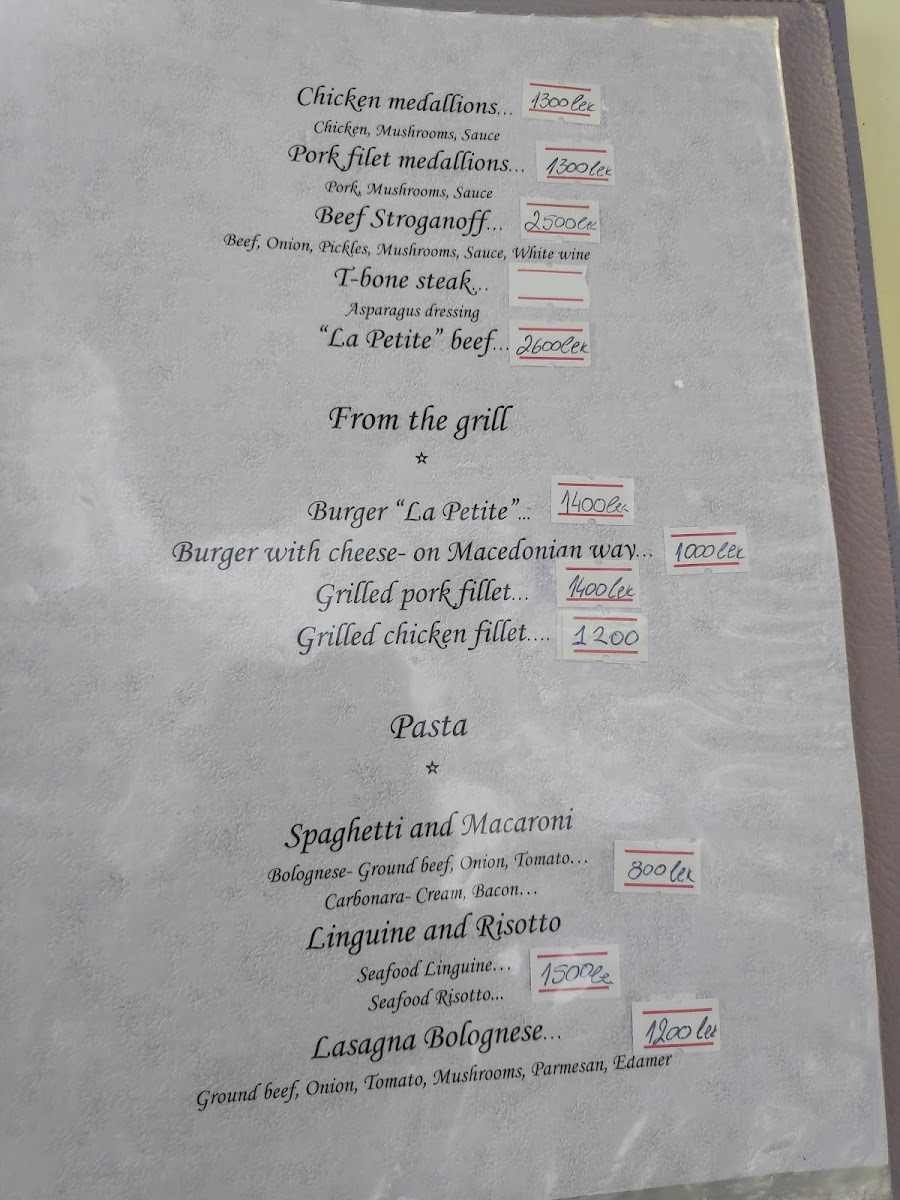 Chicken medallions... 1300lek
Chicken, Mushrooms, Sauce
Pork filet medallions... 1300lek
Pork, Mushrooms, Sauce
Beef Stroganoff... 2500lek
Beef, Onion, Pickles, Mushrooms, Sauce, White wine
T-bone steak...
Asparagus dressing
“La Petite” beef... 2600lek
From the grill
☆
Burger “La Petite”... 1400lek
Burger with cheese- on Macedonian way... 1000lek
Grilled pork fillet... 1400lek
Grilled chicken fillet.... 1200
Pasta
☆
Spaghetti and Macaroni
Bolognese- Ground beef, Onion, Tomato... 800lek
Carbonara- Cream, Bacon...
Linguine and Risotto
Seafood Linguine... 1500le
Seafood Risotto...
Lasagna Bolognese... 1200lek
Ground beef, Onion, Tomato, Mushrooms, Parmesan, Edamer